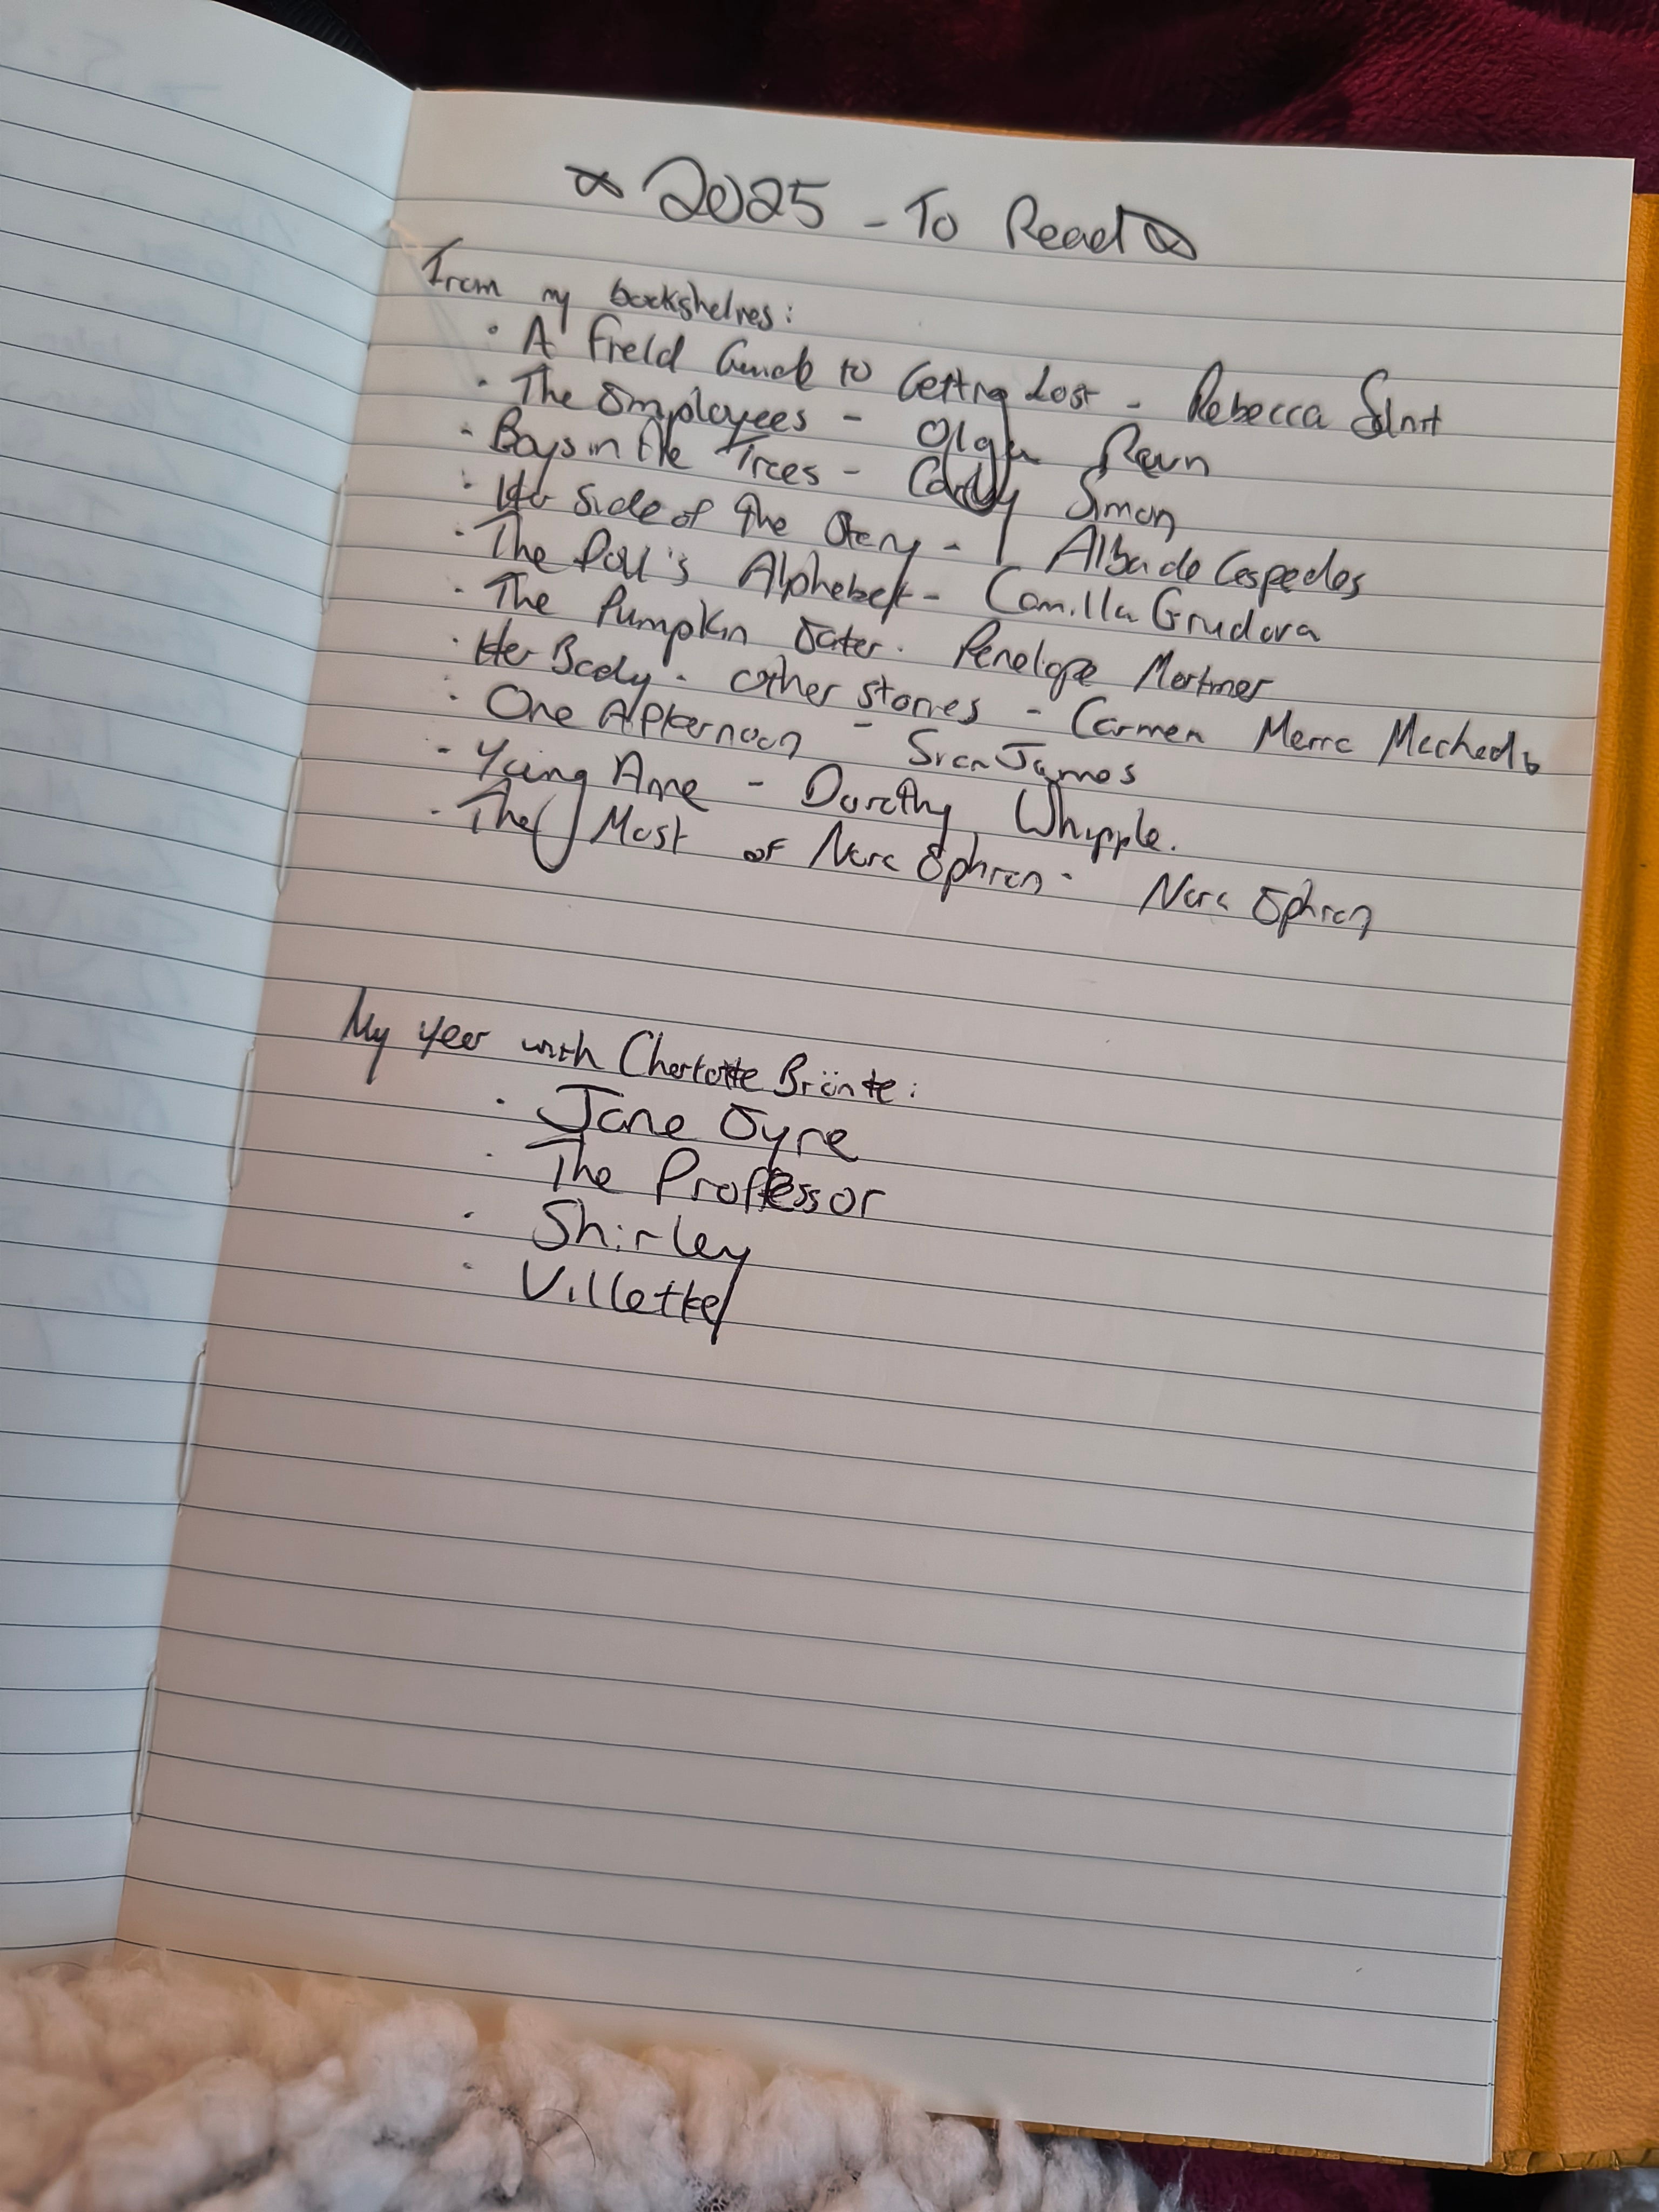 2025 - To Read
From my bookshelves:
· A Field Guide to Getting Lost - Rebecca Solnit
· The Employees - Olga Ravn
· Boys in the Trees - Carly Simon
· Her Side of the Story - Alba de Cespedes
· The Doll's Alphabet - Camilla Grudova
· The Pumpkin Eater. Penelope Mortimer
· Her Body · other stories - Carmen Maria Machado
· One Afternoon - Sian James
- Young Anne - Dorothy Whipple.
· The Most of Nora Ephron - Nora Ephron
My year with Charlotte Brönte:
· Jane Eyre
· The Professor
· Shirley
· Villette